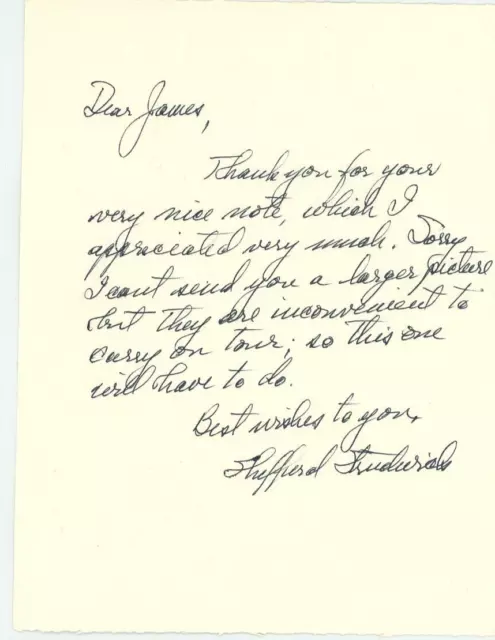 Dear James,
Thank you for your
very nice note, which I
appreciated very much. Sorry
I cant send you a larger picture
but they are inconvenient to
carry on tour; so this one
will have to do.
Best wishes to you,
Shepperd Strudwick